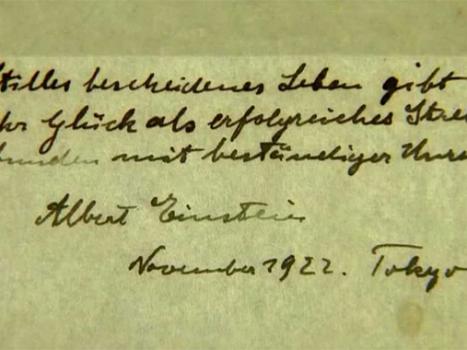 Stilles bescheidenes Leben gibt
hr Glück als erfolgreiches Stre
bunden mit beständiger Unru
Albert Einstein
November 1922. Tokyo